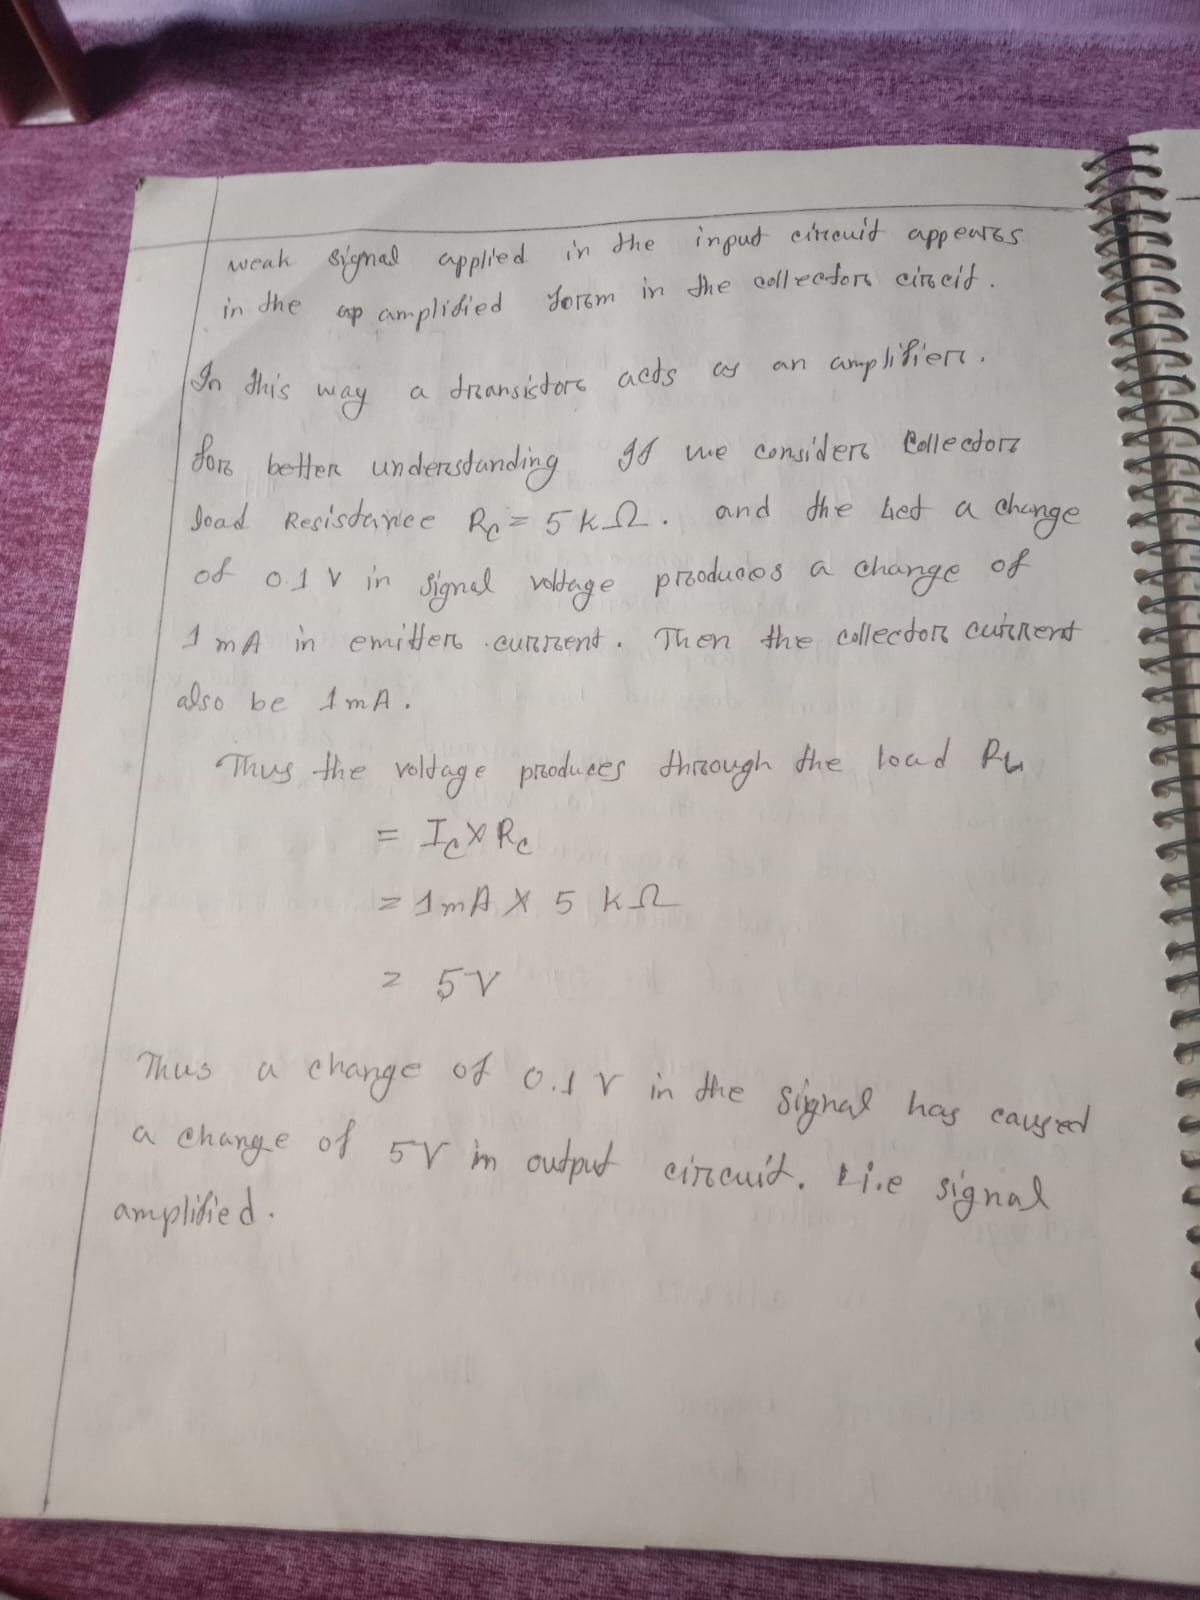 weak signal applied in the input circuit appears
in the ap amplified form in the collector circit.
In this way a transistor acts as an amplifier.
for better understanding If we consider Collector
load Resistance Rc = 5 kΩ. and the let a change
of 0.1 V in signal voltage produces a change of
1 mA in emitter current. Then the collector current
also be 1 mA.
Thus the voltage produces through the load RL
= Ic X Rc
= 1 mA X 5 kΩ
= 5V
Thus a change of 0.1 V in the signal has caused
a change of 5V in output circuit. i.e signal
amplified.